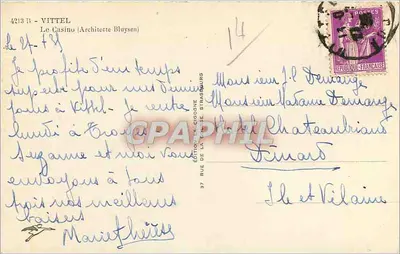 4213 B - VITTEL
Le Casino (Architecte Bluysen)
14
Je profite d'un temps
superbe pour nos derniers
jours à Vittel - Je rentre
lundi à
Suzanne et moi vous
envoyons à tous
trois nos meilleurs
baisers
Marie Thérèse
37 RUE DE LA STRASBOURG
POSTES
REPUBLIQUE FRANCAISE
Monsieur J.L. Demange
Monsieur Madame Demange
Hotel Chateaubriand
Dinard
Ile et Vilaine
CPAPHIL